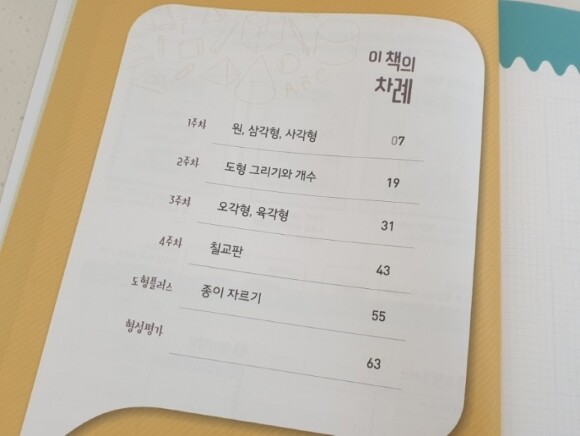 이 책의
차례
1주차 원, 삼각형, 사각형 07
2주차 도형 그리기와 개수 19
3주차 오각형, 육각형 31
4주차 칠교판 43
도형플러스 종이 자르기 55
형성평가 63